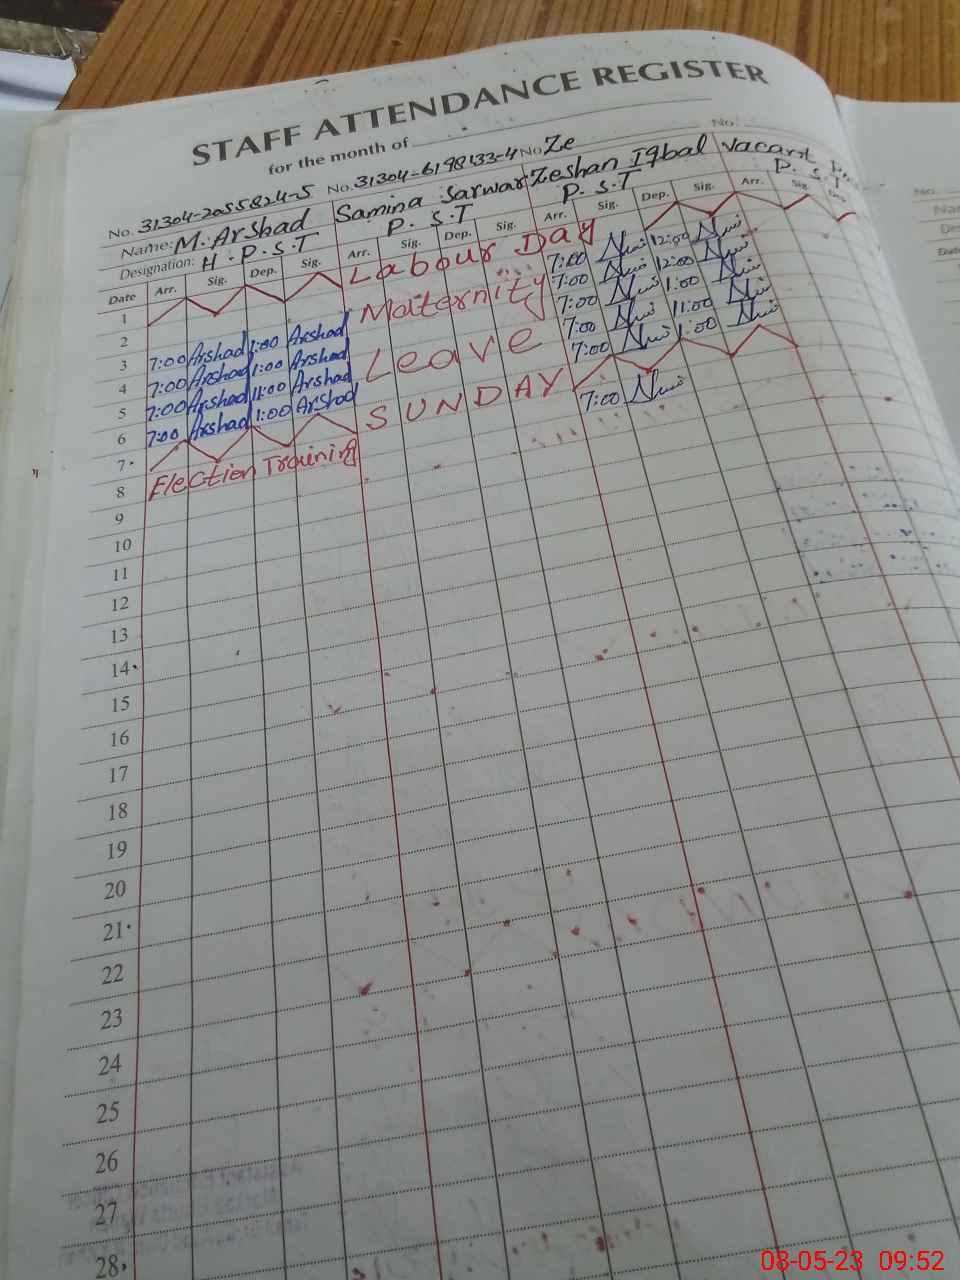 STAFF ATTENDANCE REGISTER
for the month of
No. 31304-2055824-5 No. 31304-6198133-4 No. Ze No.
Name: M. Arshad Samina Sarwar Zeshan Iqbal Vacant
Designation: H.P.S.T P.S.T P.S.T P.S.T
Date Arr. Sig. Dep. Sig. Arr. Sig. Dep. Sig. Arr. Sig. Dep. Sig. Arr. Sig. Dep.
1 Labour Day
2 Maternity 7:00 12:00
3 7:00 Arshad 1:00 Arshad 7:00 12:00
4 7:00 Arshad 1:00 Arshad Leave 7:00 1:00
5 7:00 Arshad 11:00 Arshad 7:00 11:00
6 7:00 Arshad 1:00 Arshad 7:00 1:00
7 SUNDAY
8 Election Training 7:00
9
10
11
12
13
14
15
16
17
18
19
20
21
22
23
24
25
26
27
28
08-05-23 09:52